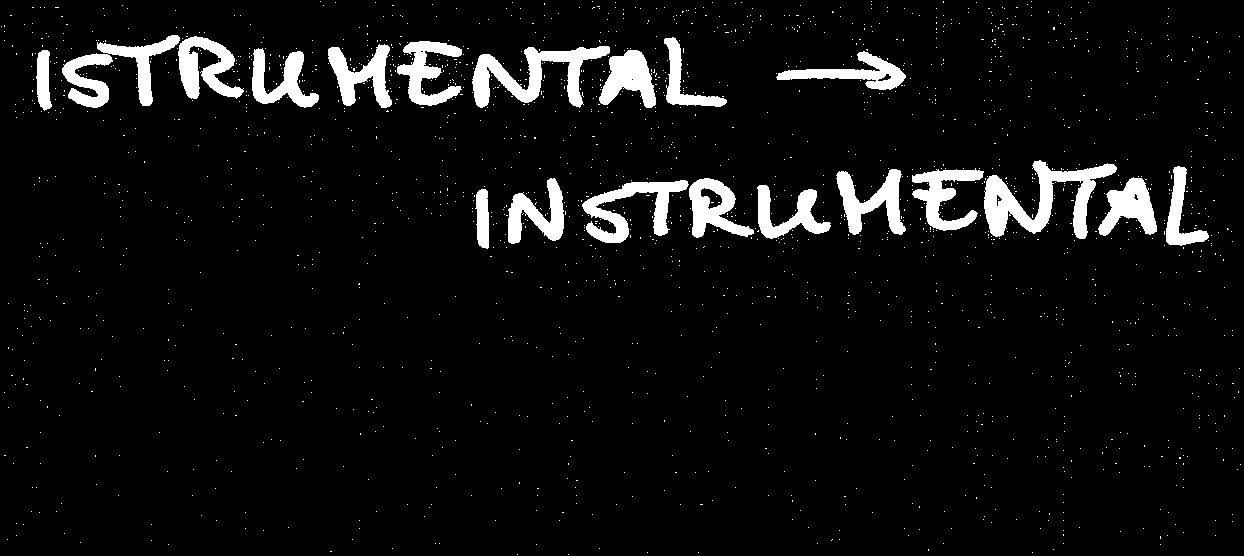 ISTRUMENTAL →
INSTRUMENTAL